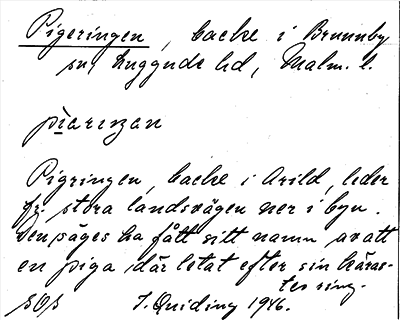 Pigeringen, backe i Brunnby
sn, Luggude hd, Malm. l.
piariŋan
Pigringen, backe i Arild, leder
fr. stora landsvägen ner i byn.
Den säges ha fått sitt namn av att
en piga där letat efter sin käras-
tes ring.
SOS I. Quiding 1946.